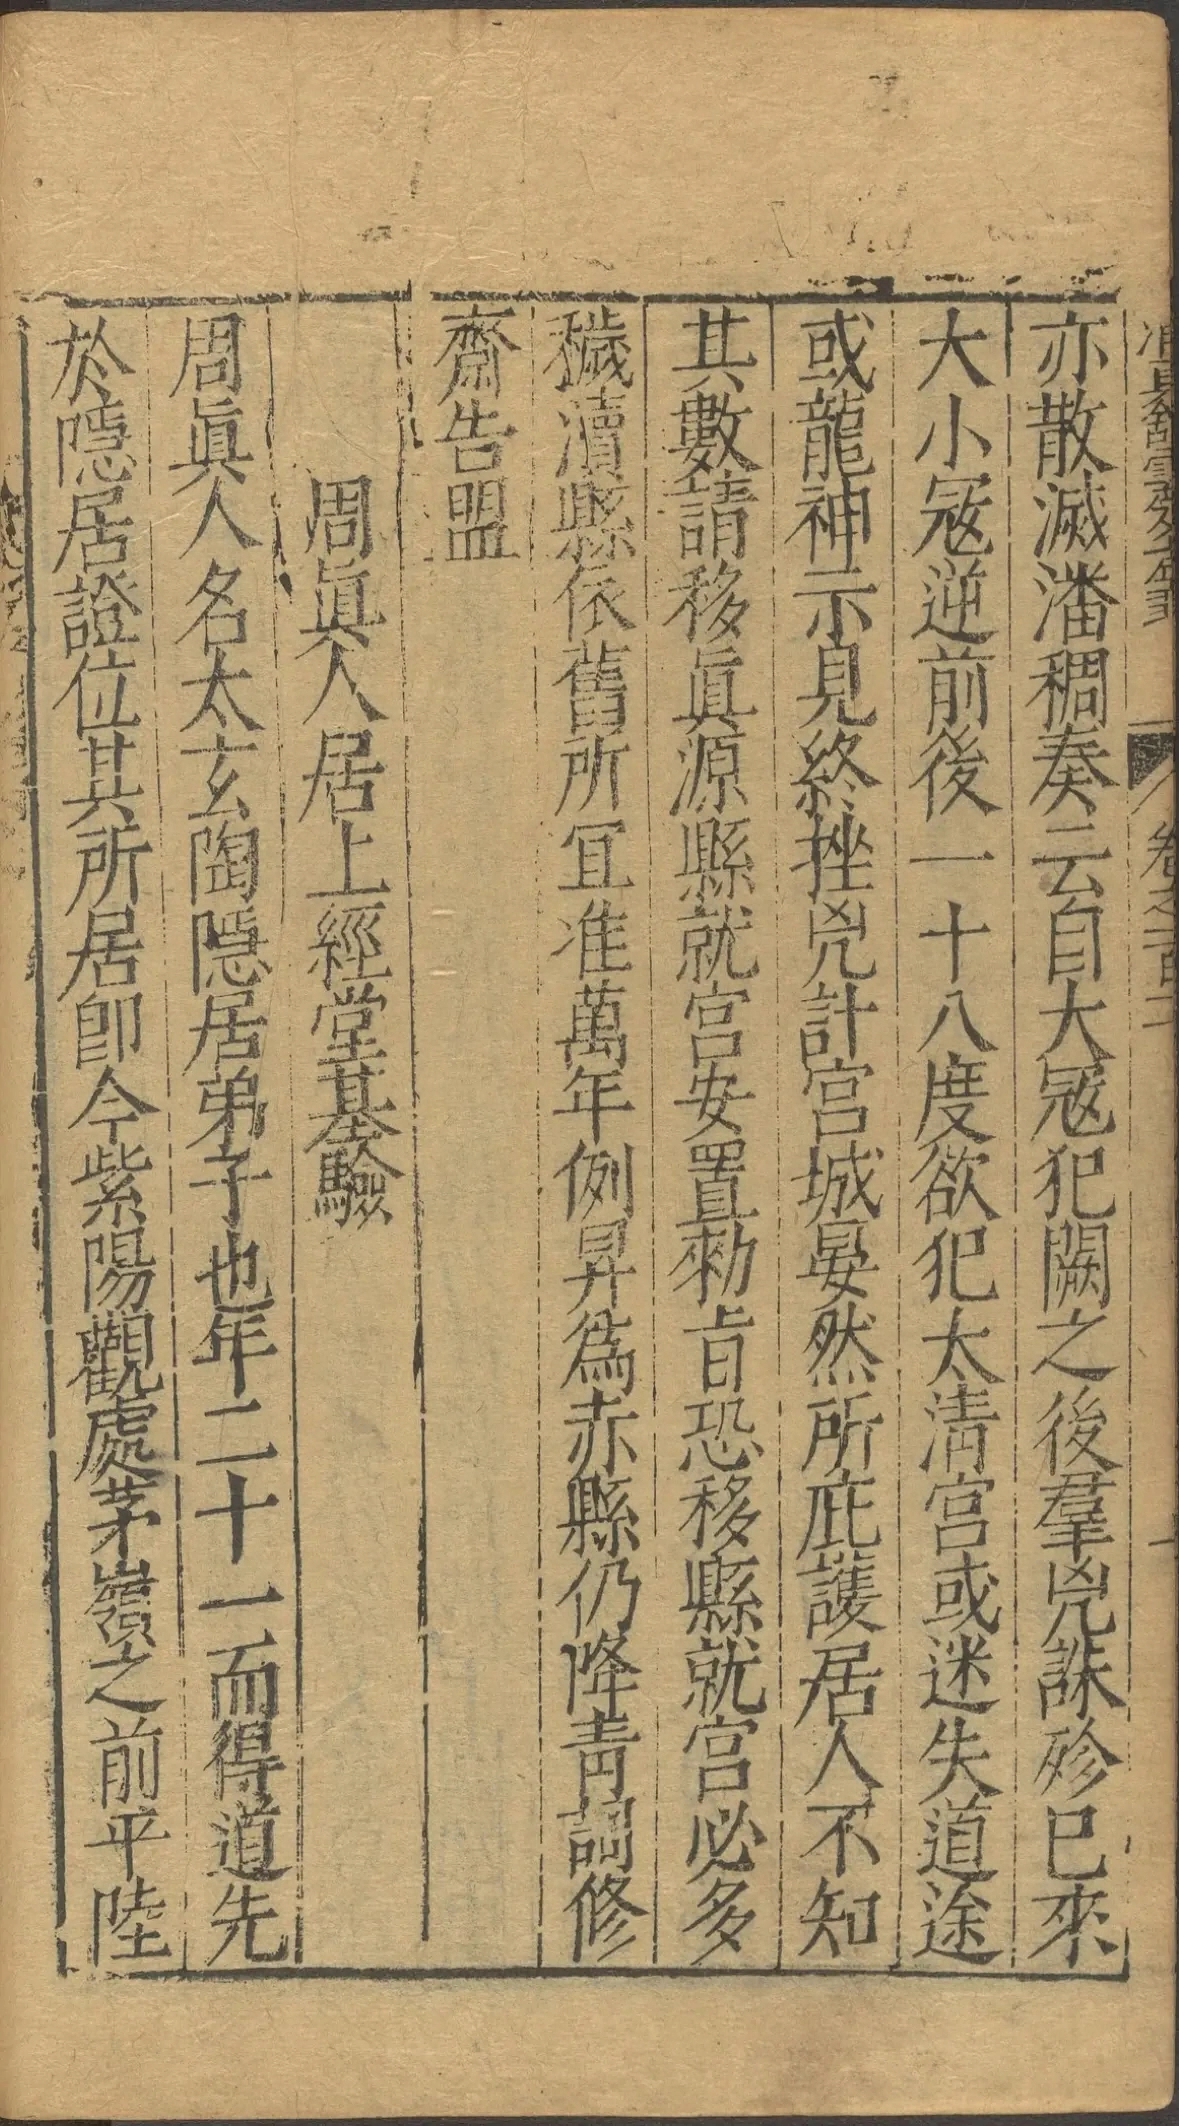 亦散滅潘稠奏云自大冦犯闕之後羣兇誅殄已來
大小冦逆前後一十八度欲犯太清宫或迷失道途
或龍神示見終挫兇計宫城晏然所庇護居人不知
其數請移眞源縣就宫安置勑㫖恐移縣就宫必多
穢瀆縣依舊所冝准萬年例昇為赤縣仍降青詞修
齋告盟
周眞人居上經堂基驗
周眞人名太玄陶隱居弟子也年二十一而得道先
於隱居證位其所居卽今紫陽觀處茅嶺之前平陸